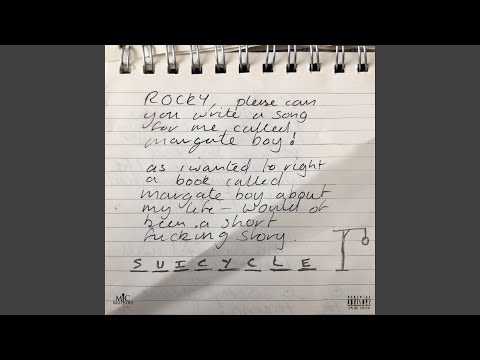 ROCKY, please can
you write a song
for me called
margate boy!
as i wanted to right
a book called
margate boy about
my life - would of
been a short
fucking story.
S U I C Y C L E
MIC
PARENTAL
ADVISORY
EXPLICIT CONTENT